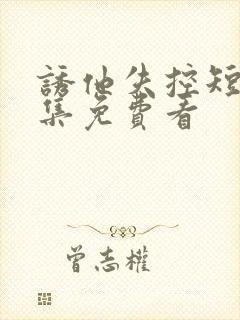 誘他失控短
集免費看
曾志權